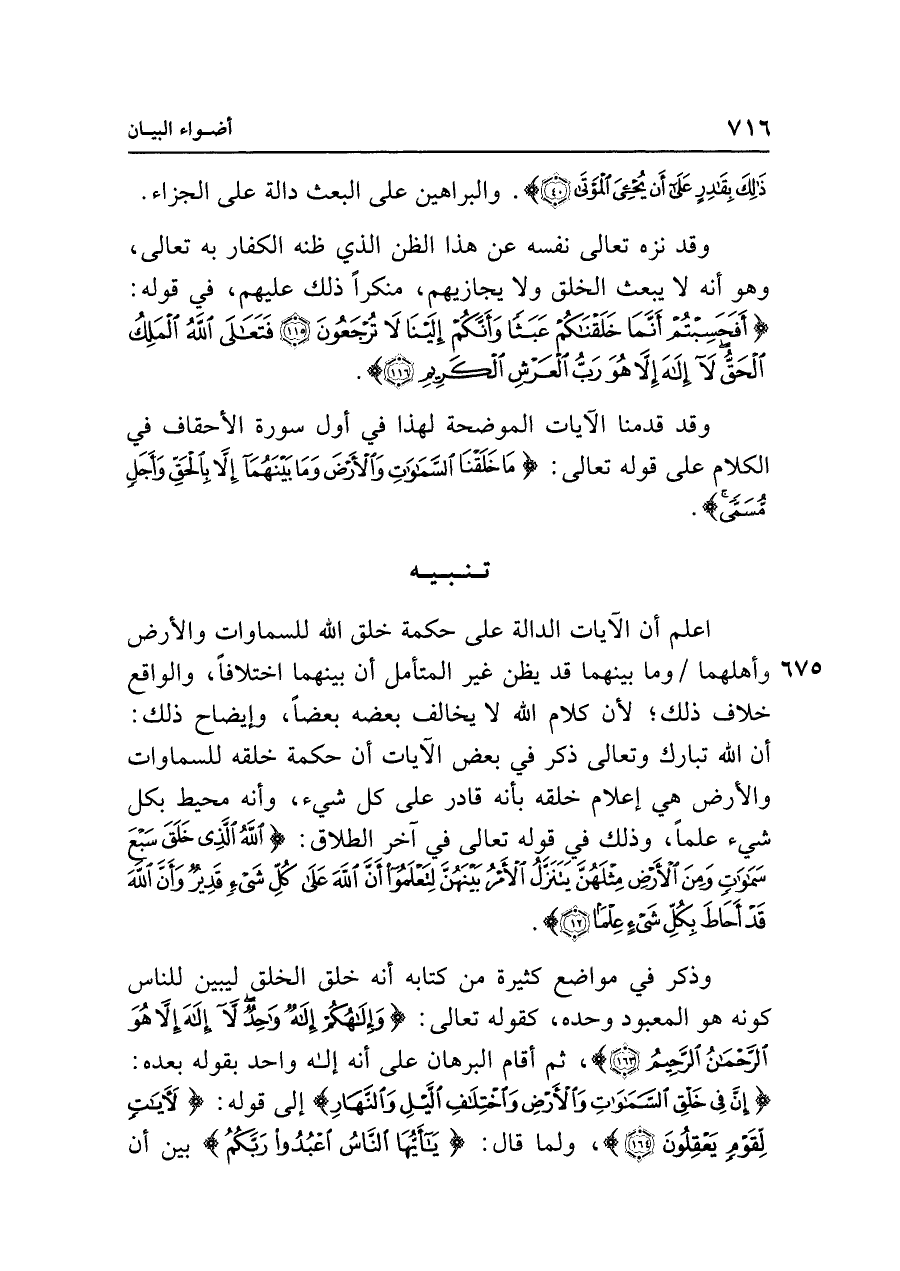 ٧١٦ أضـواء البيـان
ذَٰلِكَ بِقَٰدِرٍ عَلَىٰٓ أَن يُحۡـِۧيَ ٱلۡمَوۡتَىٰ ﴿٤٠﴾﴾. والبراهين على البعث دالة على الجزاء.
وقد نزه تعالى نفسه عن هذا الظن الذي ظنه الكفار به تعالى،
وهو أنه لا يبعث الخلق ولا يجازيهم، منكراً ذلك عليهم، في قوله:
﴿أَفَحَسِبۡتُمۡ أَنَّمَا خَلَقۡنَٰكُمۡ عَبَثٗا وَأَنَّكُمۡ إِلَيۡنَا لَا تُرۡجَعُونَ ﴿١١٥﴾ فَتَعَٰلَى ٱللَّهُ ٱلۡمَلِكُ
ٱلۡحَقُّۖ لَآ إِلَٰهَ إِلَّا هُوَ رَبُّ ٱلۡعَرۡشِ ٱلۡكَرِيمِ ﴿١١٦﴾﴾.
وقد قدمنا الآيات الموضحة لهذا في أول سورة الأحقاف في
الكلام على قوله تعالى: ﴿مَا خَلَقۡنَا ٱلسَّمَٰوَٰتِ وَٱلۡأَرۡضَ وَمَا بَيۡنَهُمَآ إِلَّا بِٱلۡحَقِّ وَأَجَلٖ
مُّسَمّٗىۚ﴾.
تـنـبـيـه
اعلم أن الآيات الدالة على حكمة خلق الله للسماوات والأرض
٦٧٥ وأهلهما / وما بينهما قد يظن غير المتأمل أن بينهما اختلافاً، والواقع
خلاف ذلك؛ لأن كلام الله لا يخالف بعضه بعضاً، وإيضاح ذلك:
أن الله تبارك وتعالى ذكر في بعض الآيات أن حكمة خلقه للسماوات
والأرض هي إعلام خلقه بأنه قادر على كل شيء، وأنه محيط بكل
شيء علماً، وذلك في قوله تعالى في آخر الطلاق: ﴿ٱللَّهُ ٱلَّذِي خَلَقَ سَبۡعَ
سَمَٰوَٰتٖ وَمِنَ ٱلۡأَرۡضِ مِثۡلَهُنَّ يَتَنَزَّلُ ٱلۡأَمۡرُ بَيۡنَهُنَّ لِتَعۡلَمُوٓاْ أَنَّ ٱللَّهَ عَلَىٰ كُلِّ شَيۡءٖ قَدِيرٞ وَأَنَّ ٱللَّهَ
قَدۡ أَحَاطَ بِكُلِّ شَيۡءٍ عِلۡمَۢا ﴿١٢﴾﴾.
وذكر في مواضع كثيرة من كتابه أنه خلق الخلق ليبين للناس
كونه هو المعبود وحده، كقوله تعالى: ﴿وَإِلَٰهُكُمۡ إِلَٰهٞ وَٰحِدٞۖ لَّآ إِلَٰهَ إِلَّا هُوَ
ٱلرَّحۡمَٰنُ ٱلرَّحِيمُ ﴿١٦٣﴾﴾، ثم أقام البرهان على أنه إلـٰه واحد بقوله بعده:
﴿إِنَّ فِي خَلۡقِ ٱلسَّمَٰوَٰتِ وَٱلۡأَرۡضِ وَٱخۡتِلَٰفِ ٱلَّيۡلِ وَٱلنَّهَارِ﴾ إلى قوله: ﴿لَأٓيَٰتٖ
لِّقَوۡمٖ يَعۡقِلُونَ ﴿١٦٤﴾﴾، ولما قال: ﴿يَٰٓأَيُّهَا ٱلنَّاسُ ٱعۡبُدُواْ رَبَّكُمُ﴾ بين أن